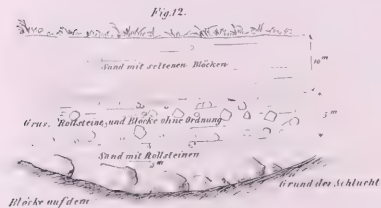 Fig. 12.
Sand mit seltenen Blöcken
10 m
Grus, Rollsteine, und Blöcke ohne Ordnung
3 m
Sand mit Rollsteinen
m
Grund der Schlucht
Blöcke auf dem